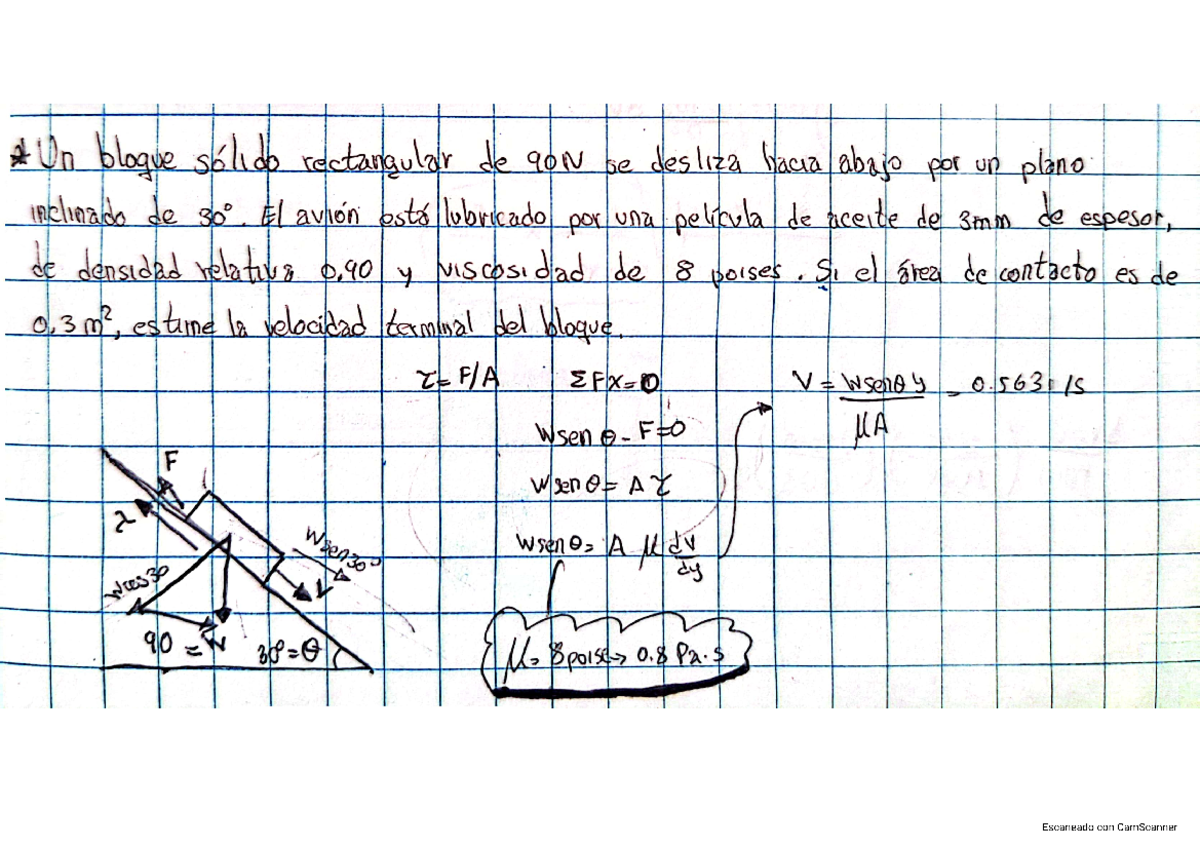 * Un bloque sólido rectangular de 90N se desliza hacia abajo por un plano
inclinado de 30°. El avión está lubricado por una película de aceite de 3mm de espesor,
de densidad relativa 0,90 y viscosidad de 8 poises. Si el área de contacto es de
0,3 m², estime la velocidad terminal del bloque.
τ = F/A ΣFx = 0 V = Wsenθ y / μA = 0.563 /s
Wsen θ - F = 0
Wsen θ = A τ
Wsen θ = A μ dv/dy
μ = 8 poise → 0.8 Pa.s
F
Wsen30°
V
Wcos30
90 = W 30° = θ
Escaneado con CamScanner